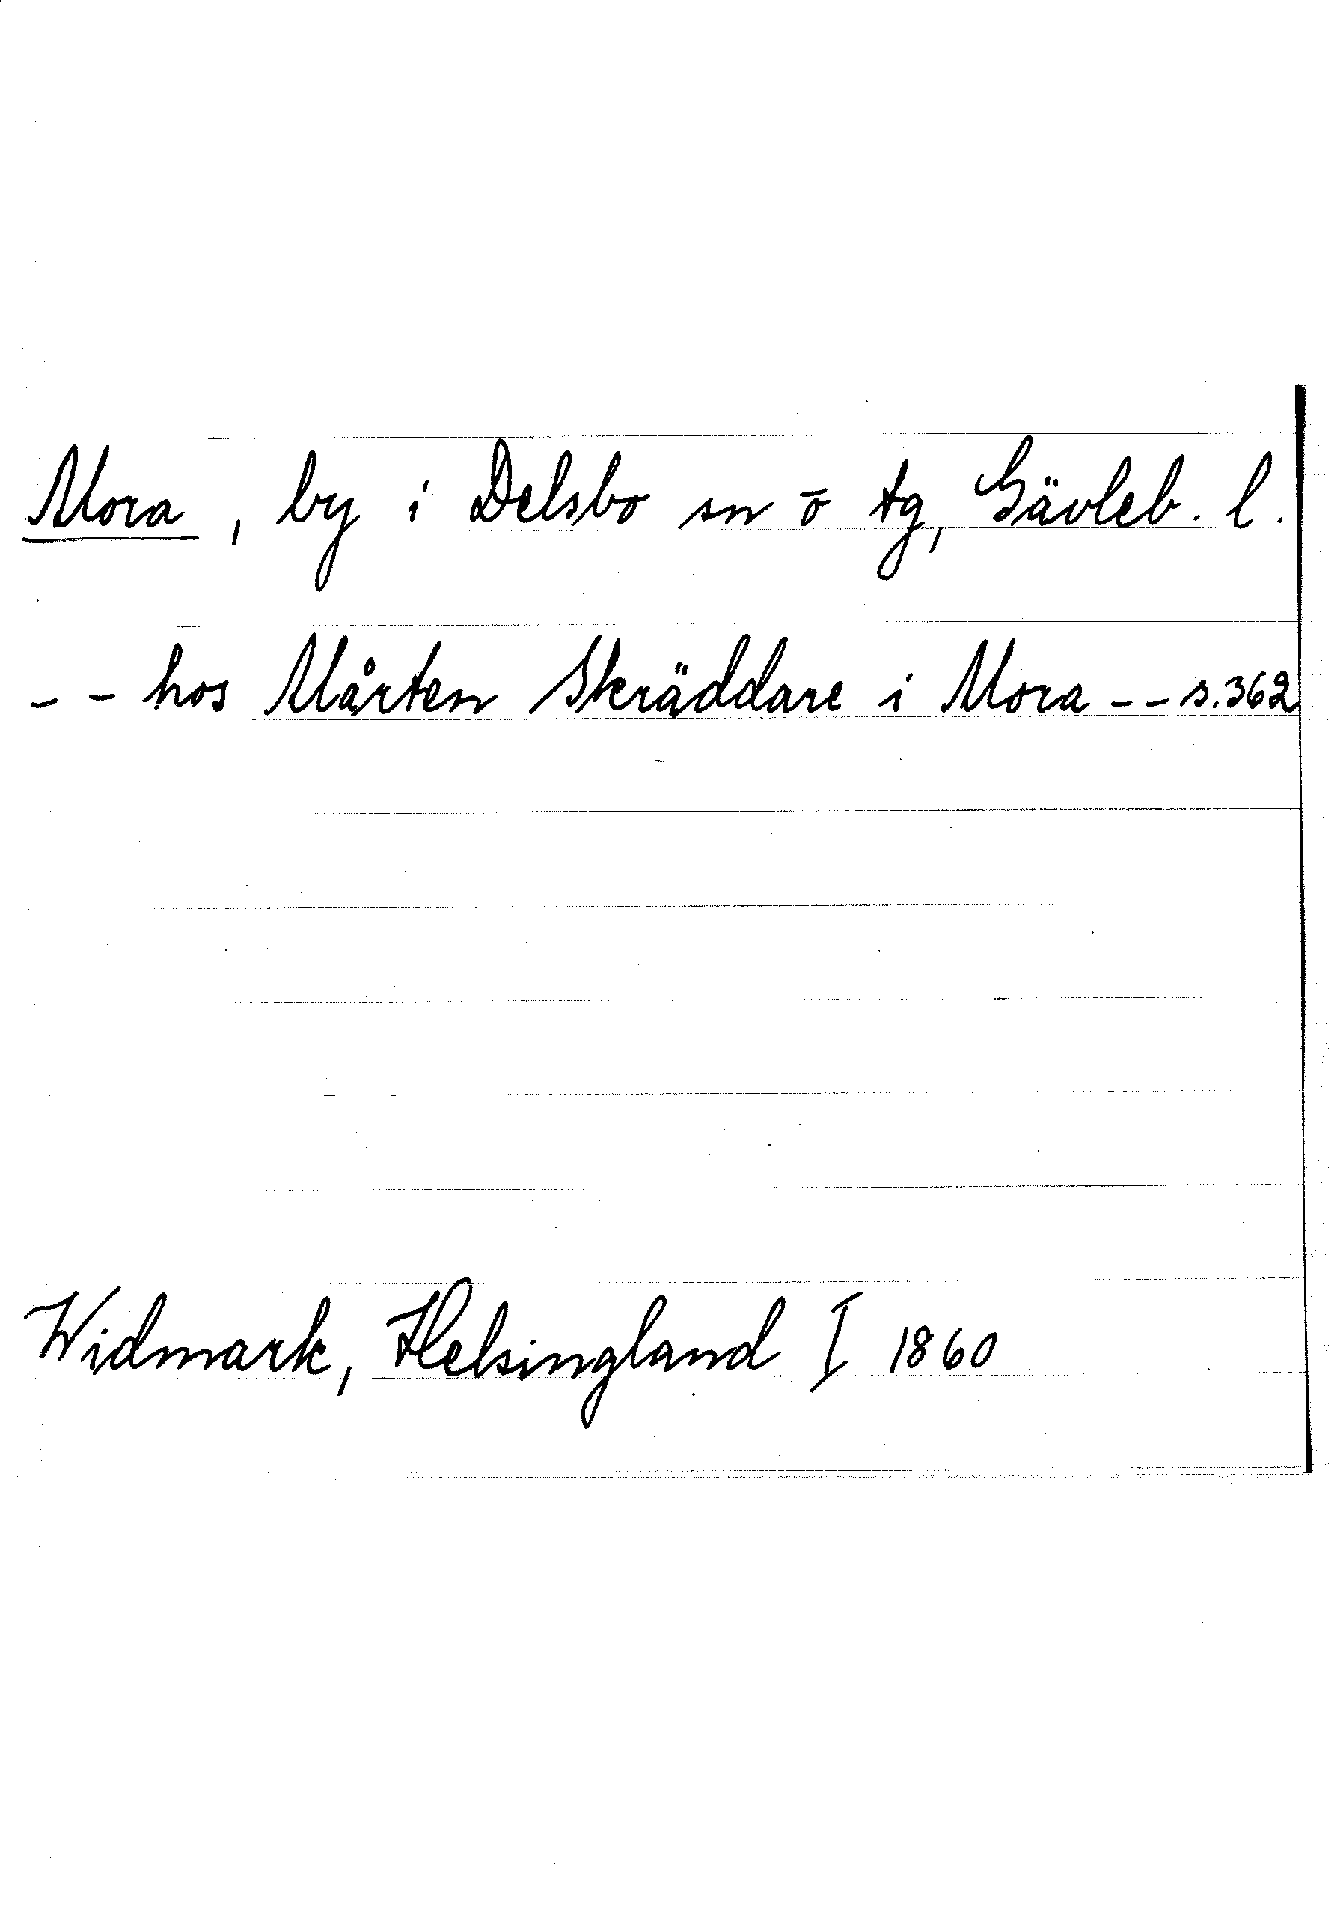 Mora, by i Delsbo sn o tg, Gävleb. l.
-- hos Mårten Skräddare i Mora -- s. 362
Widmark, Helsingland I 1860